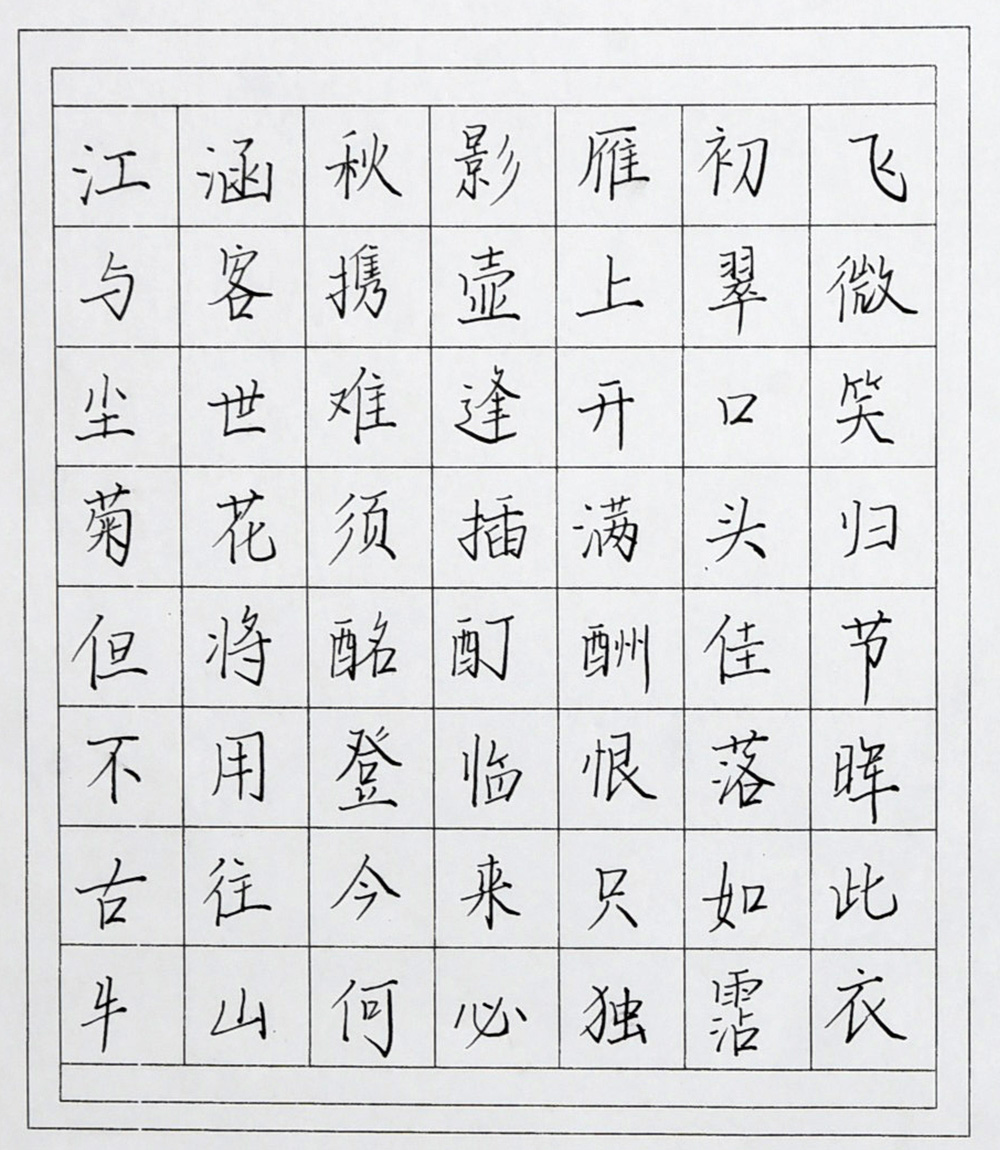 江涵秋影雁初飞
与客携壶上翠微
尘世难逢开口笑
菊花须插满头归
但将酩酊酬佳节
不用登临恨落晖
古往今来只如此
牛山何必独霑衣